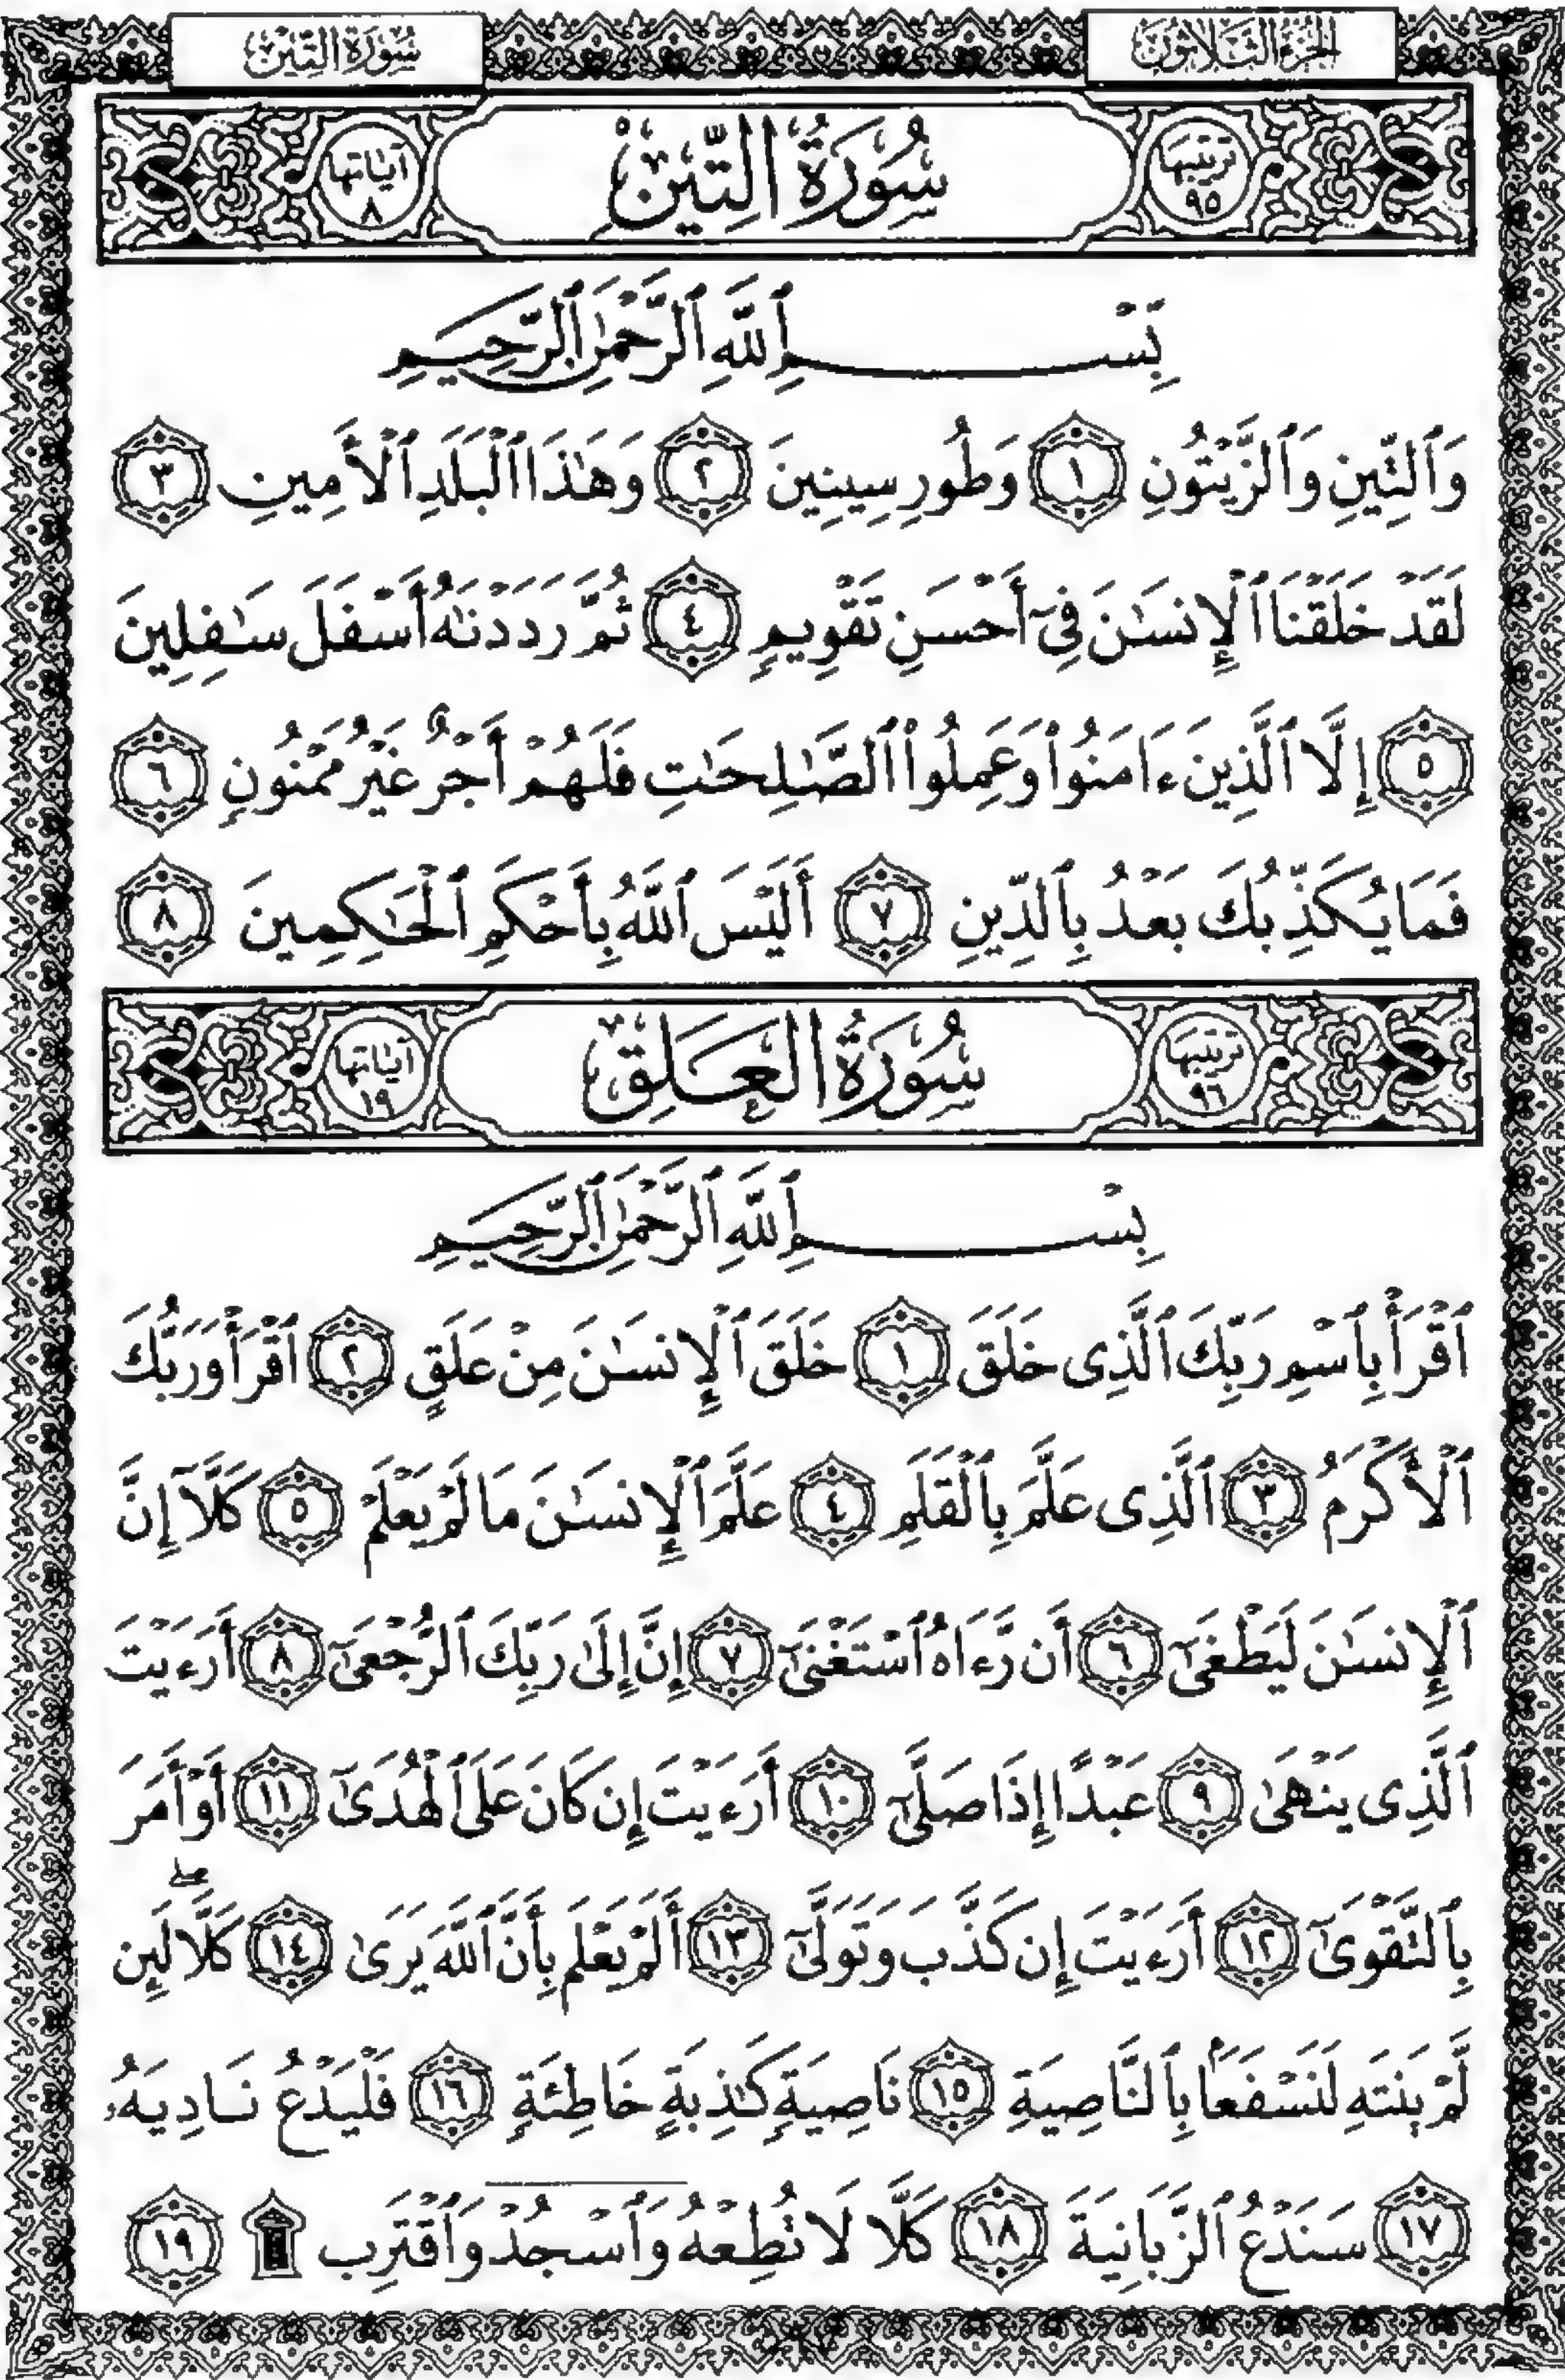 الجزء الثلاثون
سورة التين
ترتيبها ٩٥
سُورَةُ التِّينِ
آياتها ٨
بِسْمِ ٱللَّهِ ٱلرَّحْمَٰنِ ٱلرَّحِيمِ
وَٱلتِّينِ وَٱلزَّيْتُونِ ١ وَطُورِ سِينِينَ ٢ وَهَٰذَا ٱلْبَلَدِ ٱلْأَمِينِ ٣
لَقَدْ خَلَقْنَا ٱلْإِنسَٰنَ فِىٓ أَحْسَنِ تَقْوِيمٍ ٤ ثُمَّ رَدَدْنَٰهُ أَسْفَلَ سَٰفِلِينَ
٥ إِلَّا ٱلَّذِينَ ءَامَنُوا۟ وَعَمِلُوا۟ ٱلصَّٰلِحَٰتِ فَلَهُمْ أَجْرٌ غَيْرُ مَمْنُونٍ ٦
فَمَا يُكَذِّبُكَ بَعْدُ بِٱلدِّينِ ٧ أَلَيْسَ ٱللَّهُ بِأَحْكَمِ ٱلْحَٰكِمِينَ ٨
ترتيبها ٩٦
سُورَةُ العَلَقِ
آياتها ١٩
بِسْمِ ٱللَّهِ ٱلرَّحْمَٰنِ ٱلرَّحِيمِ
ٱقْرَأْ بِٱسْمِ رَبِّكَ ٱلَّذِى خَلَقَ ١ خَلَقَ ٱلْإِنسَٰنَ مِنْ عَلَقٍ ٢ ٱقْرَأْ وَرَبُّكَ
ٱلْأَكْرَمُ ٣ ٱلَّذِى عَلَّمَ بِٱلْقَلَمِ ٤ عَلَّمَ ٱلْإِنسَٰنَ مَا لَمْ يَعْلَمْ ٥ كَلَّآ إِنَّ
ٱلْإِنسَٰنَ لَيَطْغَىٰٓ ٦ أَن رَّءَاهُ ٱسْتَغْنَىٰٓ ٧ إِنَّ إِلَىٰ رَبِّكَ ٱلرُّجْعَىٰٓ ٨ أَرَءَيْتَ
ٱلَّذِى يَنْهَىٰ ٩ عَبْدًا إِذَا صَلَّىٰٓ ١٠ أَرَءَيْتَ إِن كَانَ عَلَى ٱلْهُدَىٰٓ ١١ أَوْ أَمَرَ
بِٱلتَّقْوَىٰٓ ١٢ أَرَءَيْتَ إِن كَذَّبَ وَتَوَلَّىٰٓ ١٣ أَلَمْ يَعْلَم بِأَنَّ ٱللَّهَ يَرَىٰ ١٤ كَلَّاۖ لَئِن
لَّمْ يَنتَهِ لَنَسْفَعًۢا بِٱلنَّاصِيَةِ ١٥ نَاصِيَةٍ كَٰذِبَةٍ خَاطِئَةٍ ١٦ فَلْيَدْعُ نَادِيَهُۥ
١٧ سَنَدْعُ ٱلزَّبَانِيَةَ ١٨ كَلَّا لَا تُطِعْهُ وَٱسْجُدْ وَٱقْتَرِب ۩ ١٩